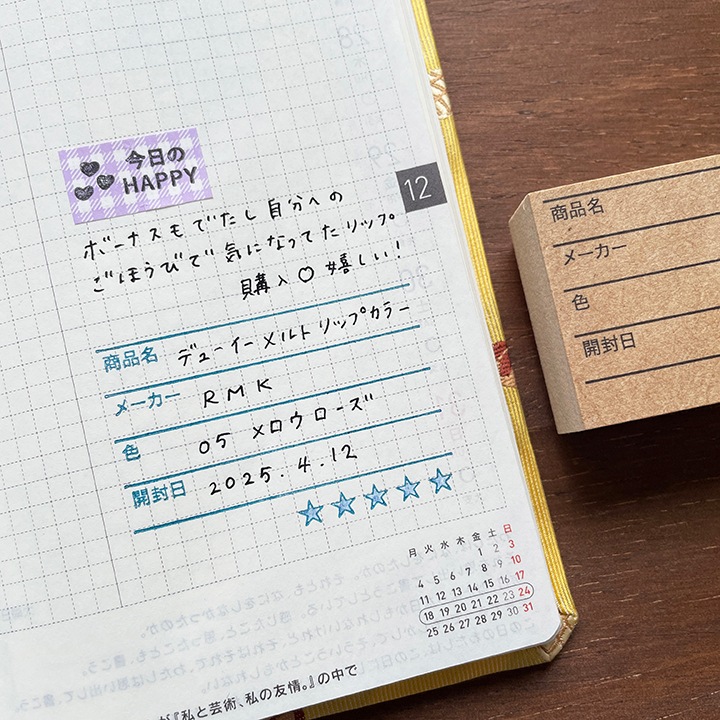 今日の
HAPPY
12
ボーナスもでたし自分への
ごほうびで気になってたリップ
購入♡嬉しい!
商品名 デューイーメルトリップカラー
メーカー RMK
色 05 メロウローズ
開封日 2025.4.12
月 火 水 木 金 土 日
1 2 3
4 5 6 7 8 9 10
11 12 13 14 15 16 17
18 19 20 21 22 23 24
25 26 27 28 29 30 31
『私と芸術、私の友情。』の中で
商品名
メーカー
色
開封日